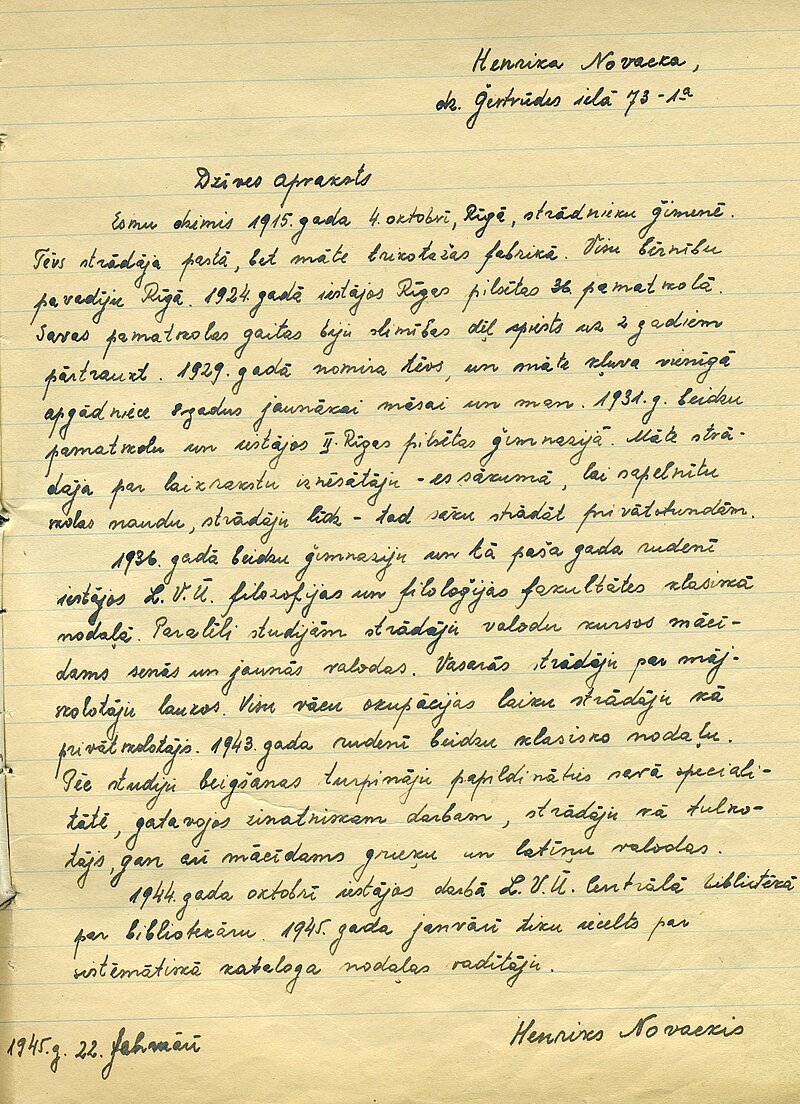 Henrika Novacka,
dz. Ģertrūdes ielā 73-1a
Dzīves apraksts
Esmu dzimis 1915. gada 4. oktobrī, Rīgā, strādnieku ģimenē.
Tēvs strādāja pastā, bet māte trikotažas fabrikā. Visu bērnību
pavadīju Rīgā. 1924. gadā iestājos Rīgas pilsētas 36. pamatskolā.
Savas pamatskolas gaitas biju slimības dēļ spiests uz 2 gadiem
pārtraukt. 1929. gadā nomira tēvs, un māte kļuva vienīgā
apgādniece 8 gadus jaunākai māsai un man. 1931. g. beidzu
pamatskolu un iestājos II. Rīgas pilsētas ģimnazijā. Māte strā-
dāja par laikrakstu iznēsātāju - es sākumā, lai sapelnītu
skolas naudu, strādāju līdz - tad sāku strādāt privātstundām.
1936. gadā beidzu ģimnaziju un tā paša gada rudenī
iestājos L.V.Ū. filozofijas un filoloģijas fakultātes klasiskā
nodaļā. Paralēli studijām strādāju valodu kursos mācī-
dams senās un jaunās valodas. Vasarās strādāju par māj-
skolotāju laukos. Visu vācu okupācijas laiku strādāju kā
privātskolotājs. 1943. gada rudenī beidzu klasisko nodaļu.
Pēc studiju beigšanas turpināju papildināties savā speciali-
tātē, gatavojos zinatniskam darbam, strādāju kā tulko-
tājs, gan arī mācīdams grieķu un latīņu valodas.
1944. gada oktobrī iestājos darbā L.V.Ū. Centrālā bibliotēkā
par bibliotekāru. 1945. gada janvārī tiku iecelts par
sistēmātiskā kataloga nodaļas vadītāju.
1945. g. 22. februārī
Henriks Novackis